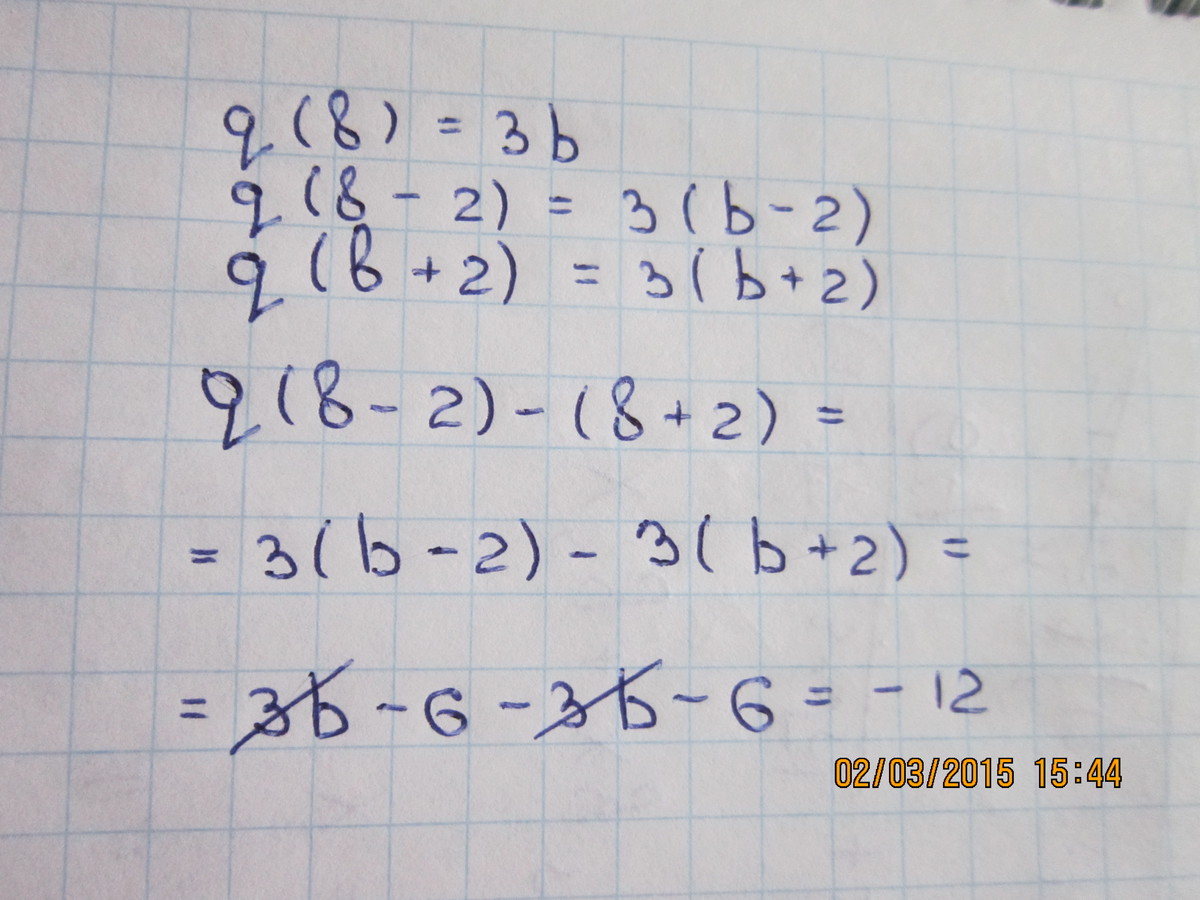 q(в) = 3b
q(в - 2) = 3(b - 2)
q(в + 2) = 3(b + 2)
q(в - 2) - (в + 2) =
= 3(b - 2) - 3(b + 2) =
= 3b - 6 - 3b - 6 = - 12
02/03/2015 15:44